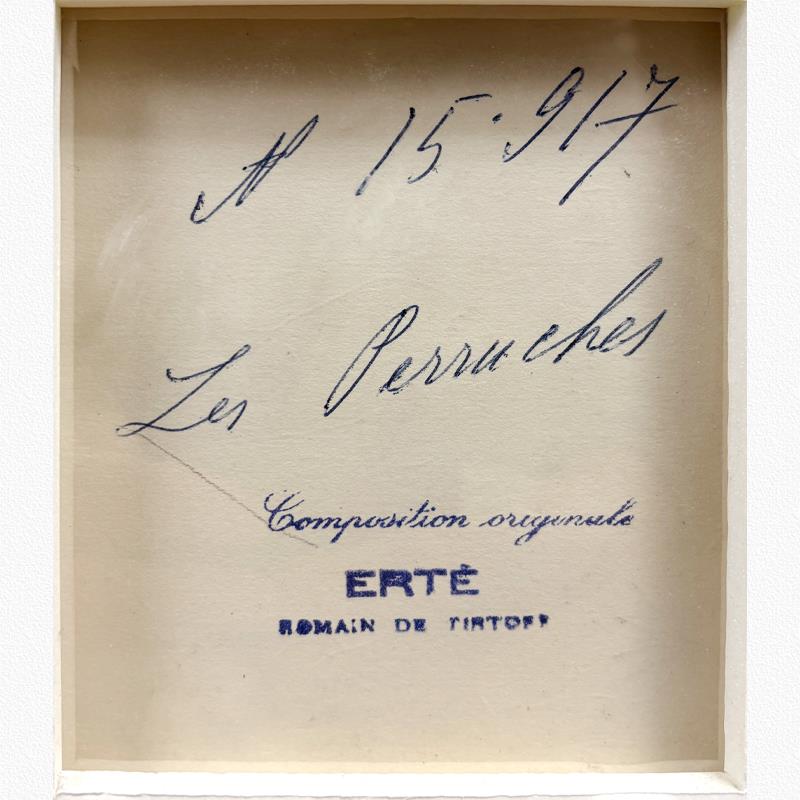 N 15.917
Les Perruches
Composition originale
ERTÉ
ROMAIN DE TIRTOFF